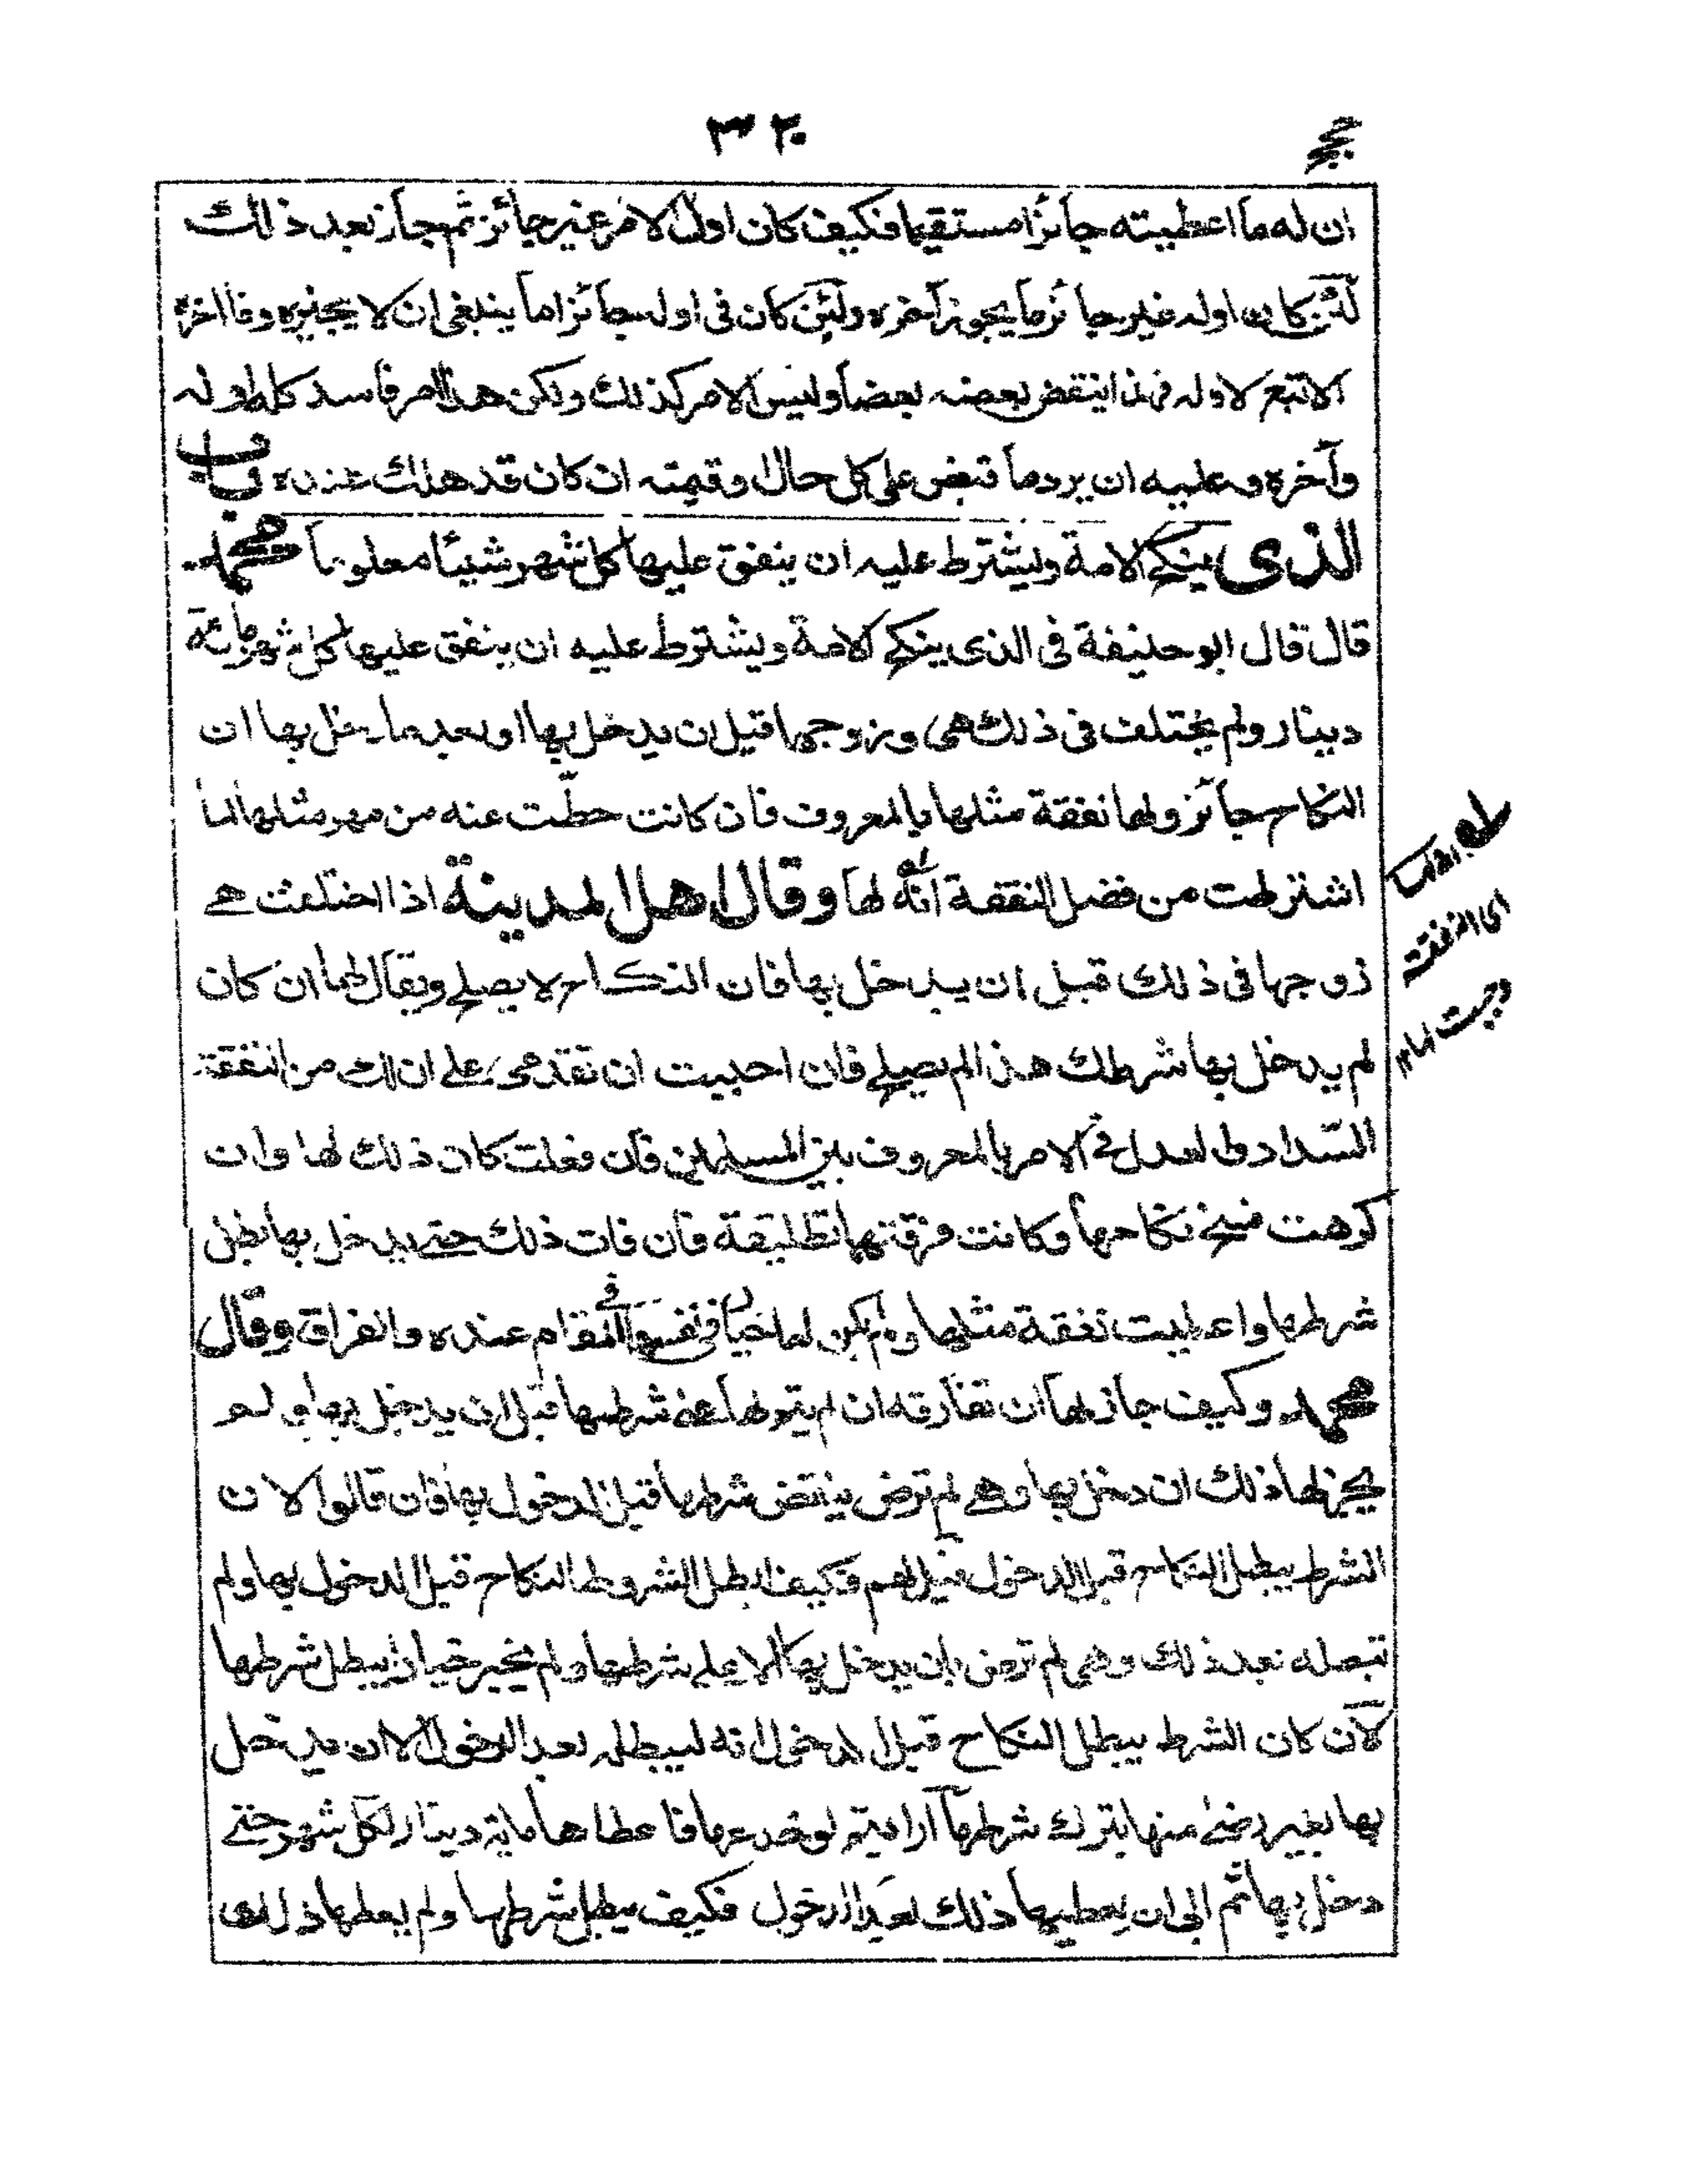 حجج
٣٢٠
ان له ما اعطيته جائزا مستقيما فكيف كان اول الامر غير جائز ثم جاز بعد ذلك
لئن كان اوله غير جائز ما يجوز آخره ولئن كان فى اوله جائزا ما ينبغى ان لا يجيزه وما اخره
الا تبع لاوله فهذا ينقض بعضه بعضا وليس الامر كذلك ولكن هذا امر فاسد كله اوله
وآخره وعليه ان يرد ما قبض على كل حال وقيمته ان كان قد هلك عنده باب
الذى ينكح الامة ويشترط عليه ان ينفق عليها كل شهر شيئا معلوما محمد
قال قال ابو حنيفة فى الذى ينكح الامة ويشترط عليه ان ينفق عليها كل شهر مائة
دينار ولم يختلف فى ذلك هى وزوجها قبل ان يدخل بها او بعد ما دخل بها ان
النكاح جائز ولها نفقة مثلها بالمعروف فان كانت حطت عنه من مهر مثلها لما
اشترطت من فضل النفقة انه لها وقال اهل المدينة اذا اختلفت هى
زوجها فى ذلك قبل ان يدخل بها فان النكاح لا يصلح ويقال لهما ان كان
لم يدخل بها شرطك هذا لم يصلح فان احببت ان تقدمى على ان لك من النفقة
السداد والعدل فى الامر بالمعروف بين المسلمين فان فعلت كان ذلك لها وان
كرهت فسخ نكاحها وكانت فرقتهما تطليقة فان فات ذلك حتى يدخل بها بطل
شرطها واعطيت نفقة مثلها ولم يكن لها خيار فى نفسها فى المقام عنده والفراق وقال
محمد وكيف جاز لها ان تفارقه ان لم يتم لها على شرطها قبل ان يدخل بها ولم
يجز لها ذلك ان دخل بها وهى لم ترض بنقض شرطها قبل الدخول بها فان قالوا لان
الشرط يبطل النكاح قبل الدخول قيل لهم فكيف ابطل الشرط النكاح قبل الدخول بها ولم
تبطله بعد ذلك وهى لم ترض بان يدخل بها الا على شرطها ولم يخير خيارا يبطل شرطها
لان كان الشرط يبطل النكاح قبل الدخول انه ليبطله بعد الدخول الا ان يدخل
بها بغير رضى منها بترك شرطها أرايتم لو خدعها فاعطاها مائة دينار لكل شهر حتى
دخل بها ثم ابى ان يعطيها ذلك بعد الدخول فكيف يبطل شرطها ولم يعطها ذلك
اى النفقة
وجبت لها ١٢